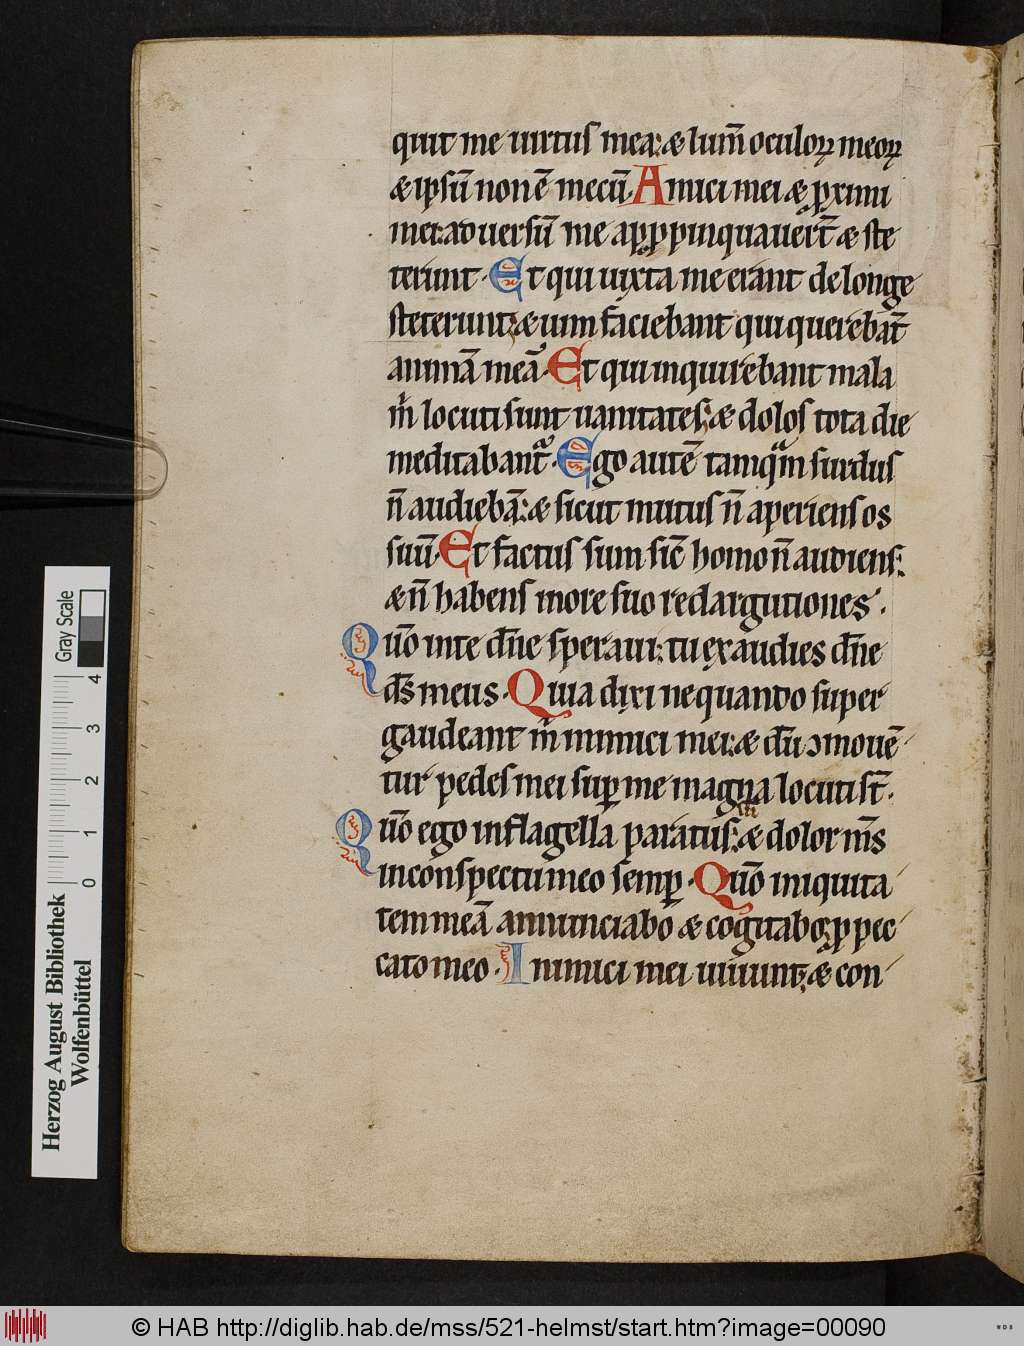 quit me uirtus mea: & lum̄ oculoꝝ meoꝝ
& ipsū non ē mecū. Amici mei & ꝓximi
mei: aduersū me apꝓpinquauer̄t & ste
terunt. Et qui iuxta me erant de longe
steterunt; & uim faciebant qui querebāt
animā meā. Et qui inquirebant mala
m̄ locuti sunt uanitates; & dolos tota die
meditabantᷣ. Ego autē tamqͣm surdus
n̄ audiebā: & sicut mutus n̄ aperiens os
suū. Et factus sum sic̄ homo n̄ audiens:
& n̄ habens in ore suo redargutiones.
Qūo in te dn̄e speraui: tu exaudies dn̄e
ds̄ meus. Quia dixi ne quando super
gaudeant m̄ inimici mei: & dū ɔmouē
tur pedes mei suꝑ me magna locuti st̄.
Qūo ego in flagella paratus: & dolor ms̄
in conspectu meo semꝑ. Qūo iniquita
tem meā annunciabo & cogitabo; ꝓ pec
cato meo. Inimici mei uiuunt; & con
Herzog August Bibliothek
Wolfenbüttel
Gray Scale
0 1 2 3 4
© HAB http://diglib.hab.de/mss/521-helmst/start.htm?image=00090